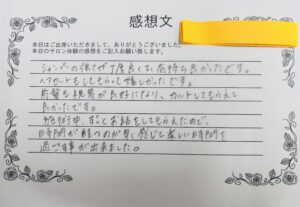 感想文
本日はご出席いただきまして、ありがとうございました。
本日のサロン体験の感想をご記入お願い致します。
シャンプーの強さが丁度良くて、気持ち良かったです。
ヘアセットもしてもらって嬉しかったです。
前髪も視界が良好になり、カットしてもらえて
良かったです。
施術中、ずっとお話をしてもらえたので、
時間が経つのが早く感じて楽しい時間を
過ごす事が出来ました。